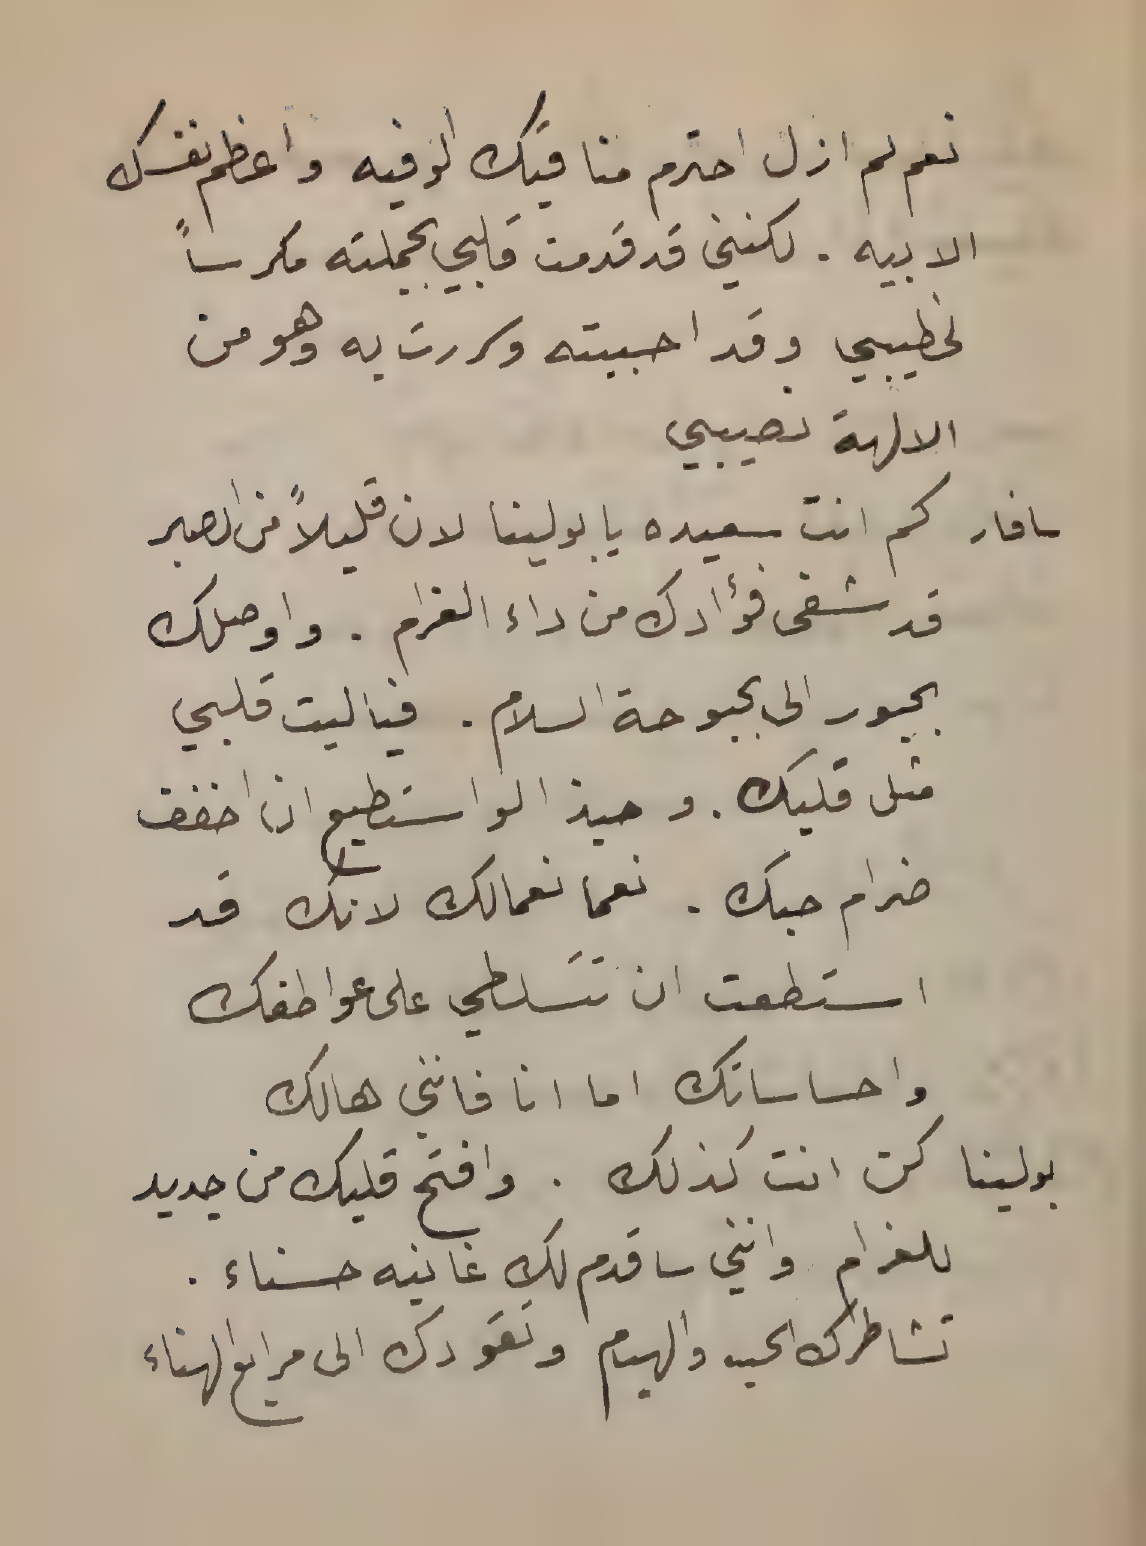 نعم لم ازل احترم مناقبك الوفيه واعظم نفسك
الابيه . لكنني قد قدمت قلبي بجملته مكرساً
لخطيبي وقد احببته وكررت به وهو من
الالهة نصيبي
سافار كم انت سعيده يا بولينا لان قليلاً من الصبر
قد شفى فؤادك من داء الغرام . واوصلك
بحبور الى بحبوحة السلام . فيا ليت قلبي
مثل قلبك . وحبذا لو استطيع ان اخفف
ضرام حبك . نعما نعما لك لانك قد
استطعت ان تتسلطي على عواطفك
واحساساتك اما انا فانني هالك
بولينا كن انت كذلك . وافتح قلبك من جديد
للغرام وانني ساقدم لك غانيه حسناء .
تشاطرك الحب والهيام وتقودك الى مرابع الهناء